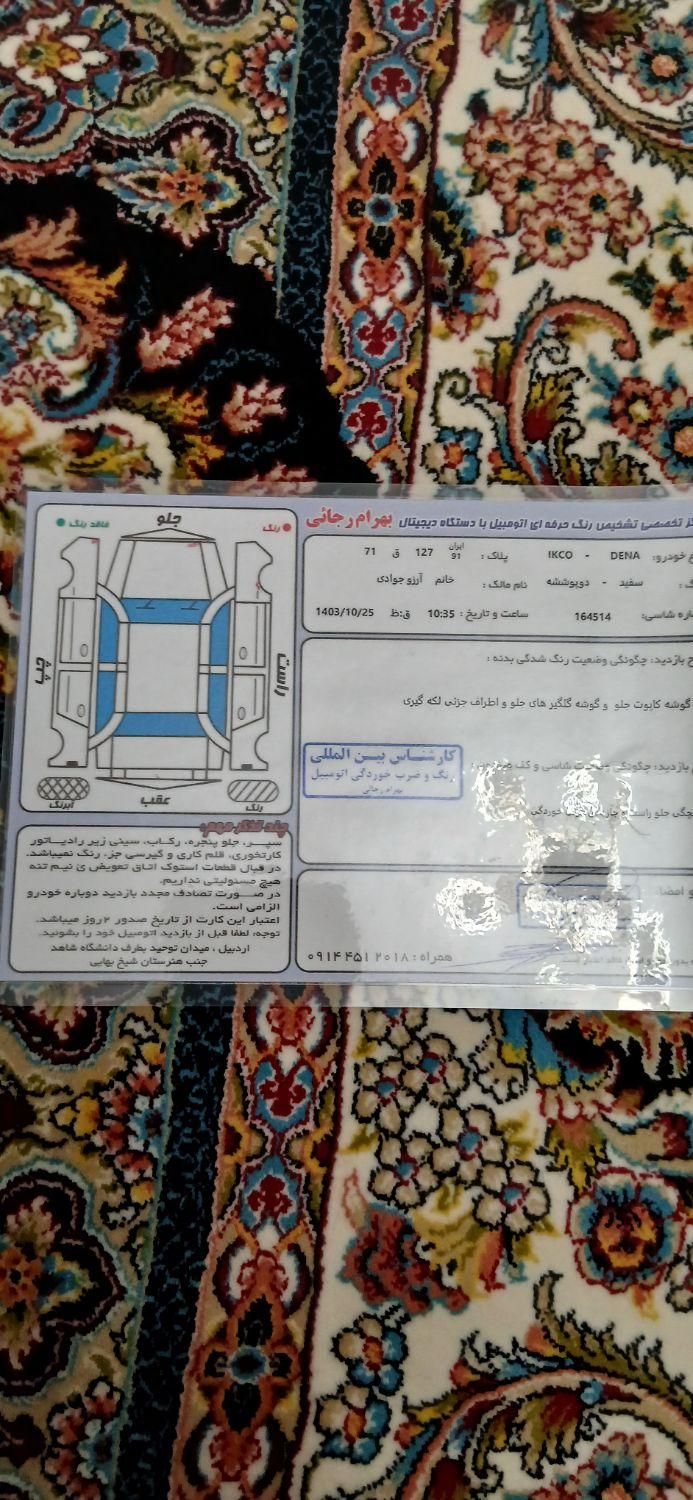 تخصصی تشخیص رنگ حرفه ای اتومبیل با دستگاه دیجیتال بهرام رجائی
خودرو: IKCO - DENA پلاک : ایران 91 127 ق 71
سفید - دوپوششه نام مالک : خانم آرزو جوادی
شاسی: 164514 ساعت و تاریخ : 10:35 ق:ظ 1403/10/25
بازدید: چگونگی وضعیت رنگ شدگی بدنه :
گوشه کاپوت جلو و گوشه گلگیر های جلو و اطراف جزئی لکه گیری
بازدید: چگونگی وضعیت شاسی و کف
جلو راست خوردگی
کارشناس بین المللی
رنگ و ضرب خوردگی اتومبیل
بهرام رجائی
و امضا
همراه : ۰۹۱۴ ۴۵۱ ۲۰۱۸
رنگ
جلو
فاقد رنگ
راست
چپ
رنگ
عقب
آبرنگ
چند تذکر مهم:
سپر، جلو پنجره، رکاب، سینی زیر رادیاتور
کارتخوری، قلم کاری و گیرسی جزء رنگ نمیباشد.
در قبال قطعات استوک اتاق تعویض ی نیم تنه
هیچ مسئولیتی نداریم.
در صورت تصادف مجدد بازدید دوباره خودرو
الزامی است.
اعتبار این کارت از تاریخ صدور ۲ روز میباشد.
توجه: لطفا قبل از بازدید اتومبیل خود را بشوئید.
اردبیل ، میدان توحید بطرف دانشگاه شاهد
جنب هنرستان شیخ بهایی